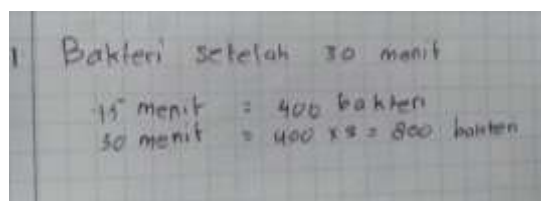 1 Bakteri setelah 30 menit
15 menit = 400 bakteri
30 menit = 400 x 2 = 800 bakteri